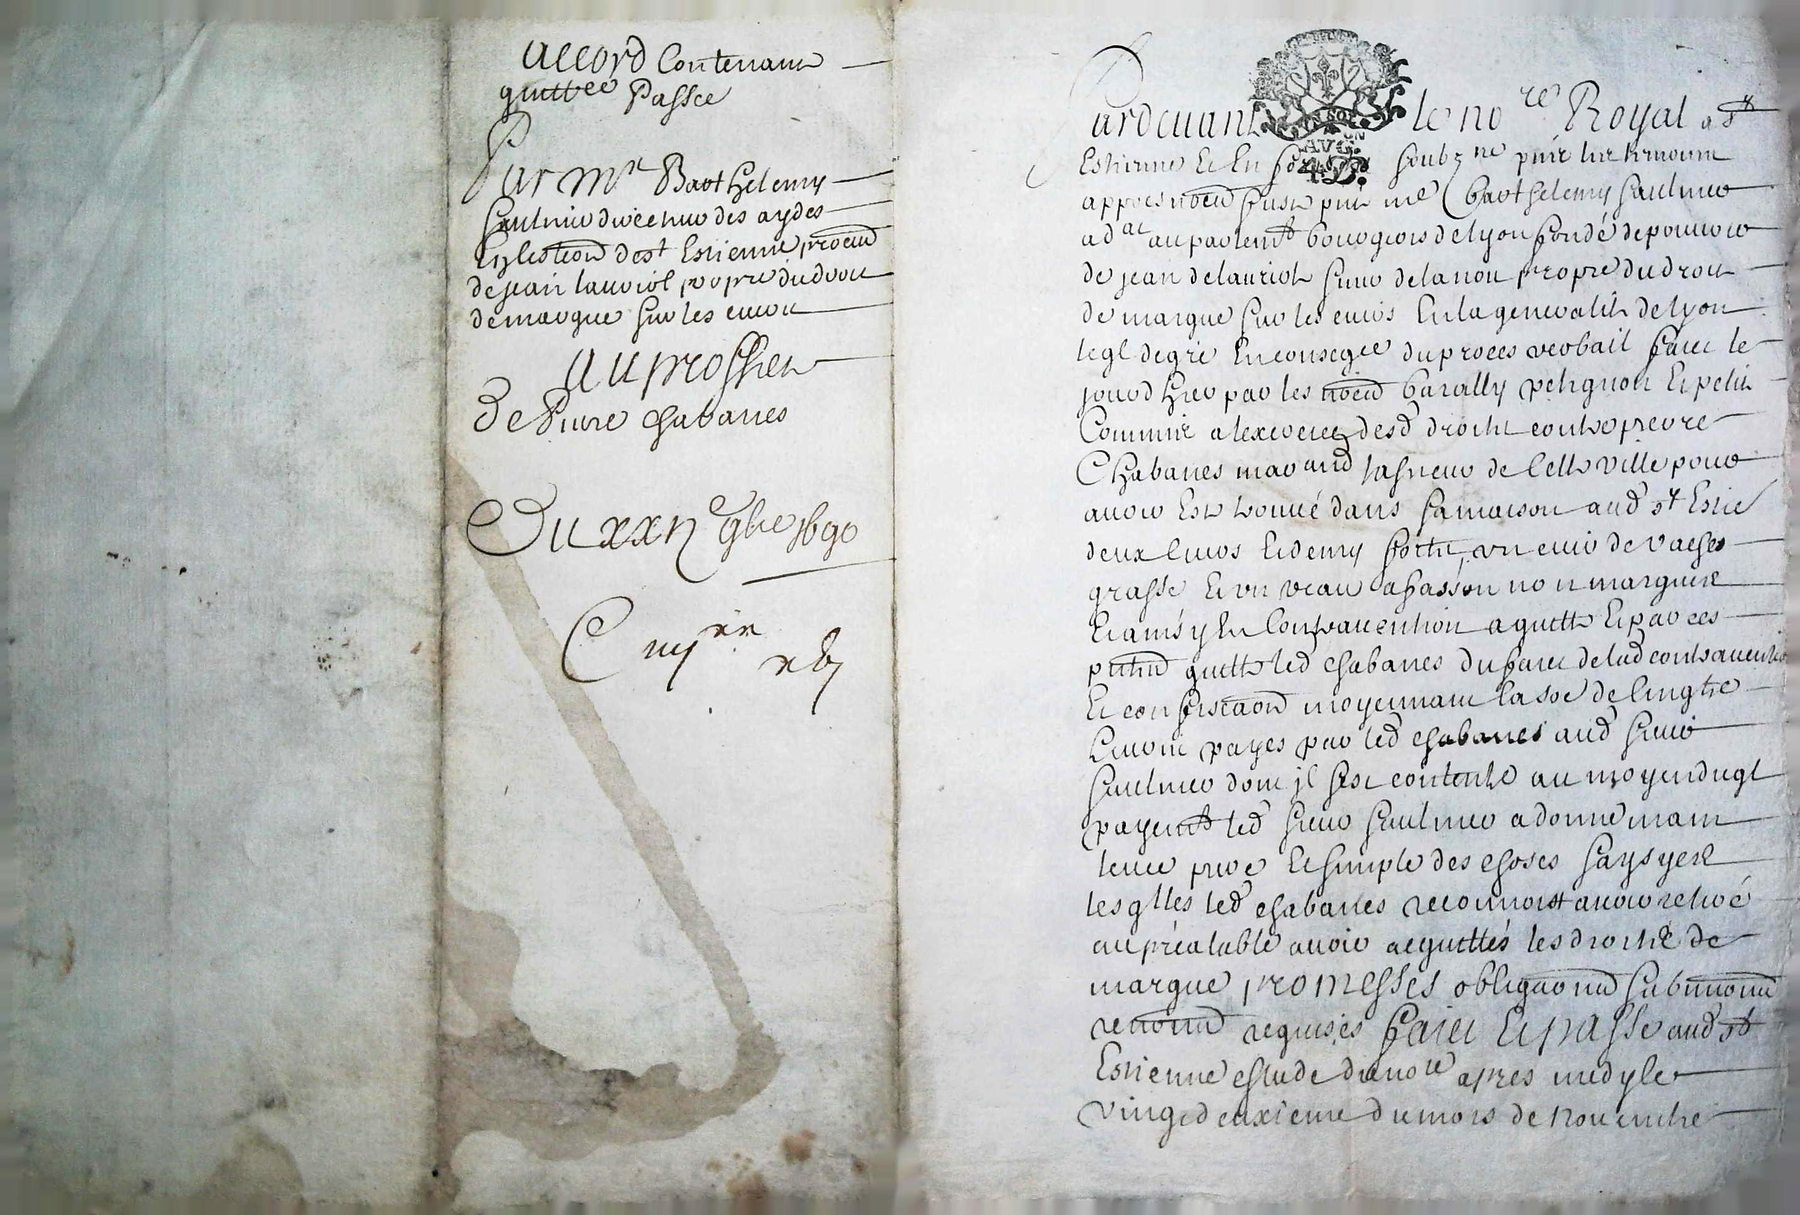 accord Contenant
quittce Passee
Par Mre Barthelemy
Saulnier directeur des aydes
En lestion de st Estienne procur
de jean lauriol propre du droit
de marque sur les cuirs
au proffict
De Pierre Chabanes
Du xxii 9bre 1690
Pardevant le nore Royal a st
Estienne et En forestz soubz ne
appres Me Barthelemy Saulnier
adat au parlemt bourgeois de lyon fondé de pouvoir
de jean de lauriol sieur de la propre du droit
de marque sur les cuirs En la generalité de lyon
legl de gré En conseqce du proces verbail faict le
jourdhier par les Barally petignon Et petit
Commis a lexercice desd droitz contre pierre
Chabanes marchand tasneur de cette ville pour
avoir Este trouvé dans sa maison aud st Estie
deux cuirs Et demy fortz, un cuir de vaches
grasse Et un veau a non marquere
Et ainsy En Contravention a quitte Et par ces
pntes quitte led chabanes du faict de lad contravention
Et confiscaon moyennant la soe de cinq lre
payes par led chabanes aud sieur
Saulnier dont jl sest contente au moyen duql
payemt led sieur Saulnier a donne main
levee pure Et simple des choses saysyere
lesqlles led chabanes reconnoist avoir retiré
au préalable avoir acquittés les droitz de
marque promesses obligaons submons
renons requises faict Et passe aud st
Estienne estude dud nore apres midy le
vingt deuxieme du mois de Novembre